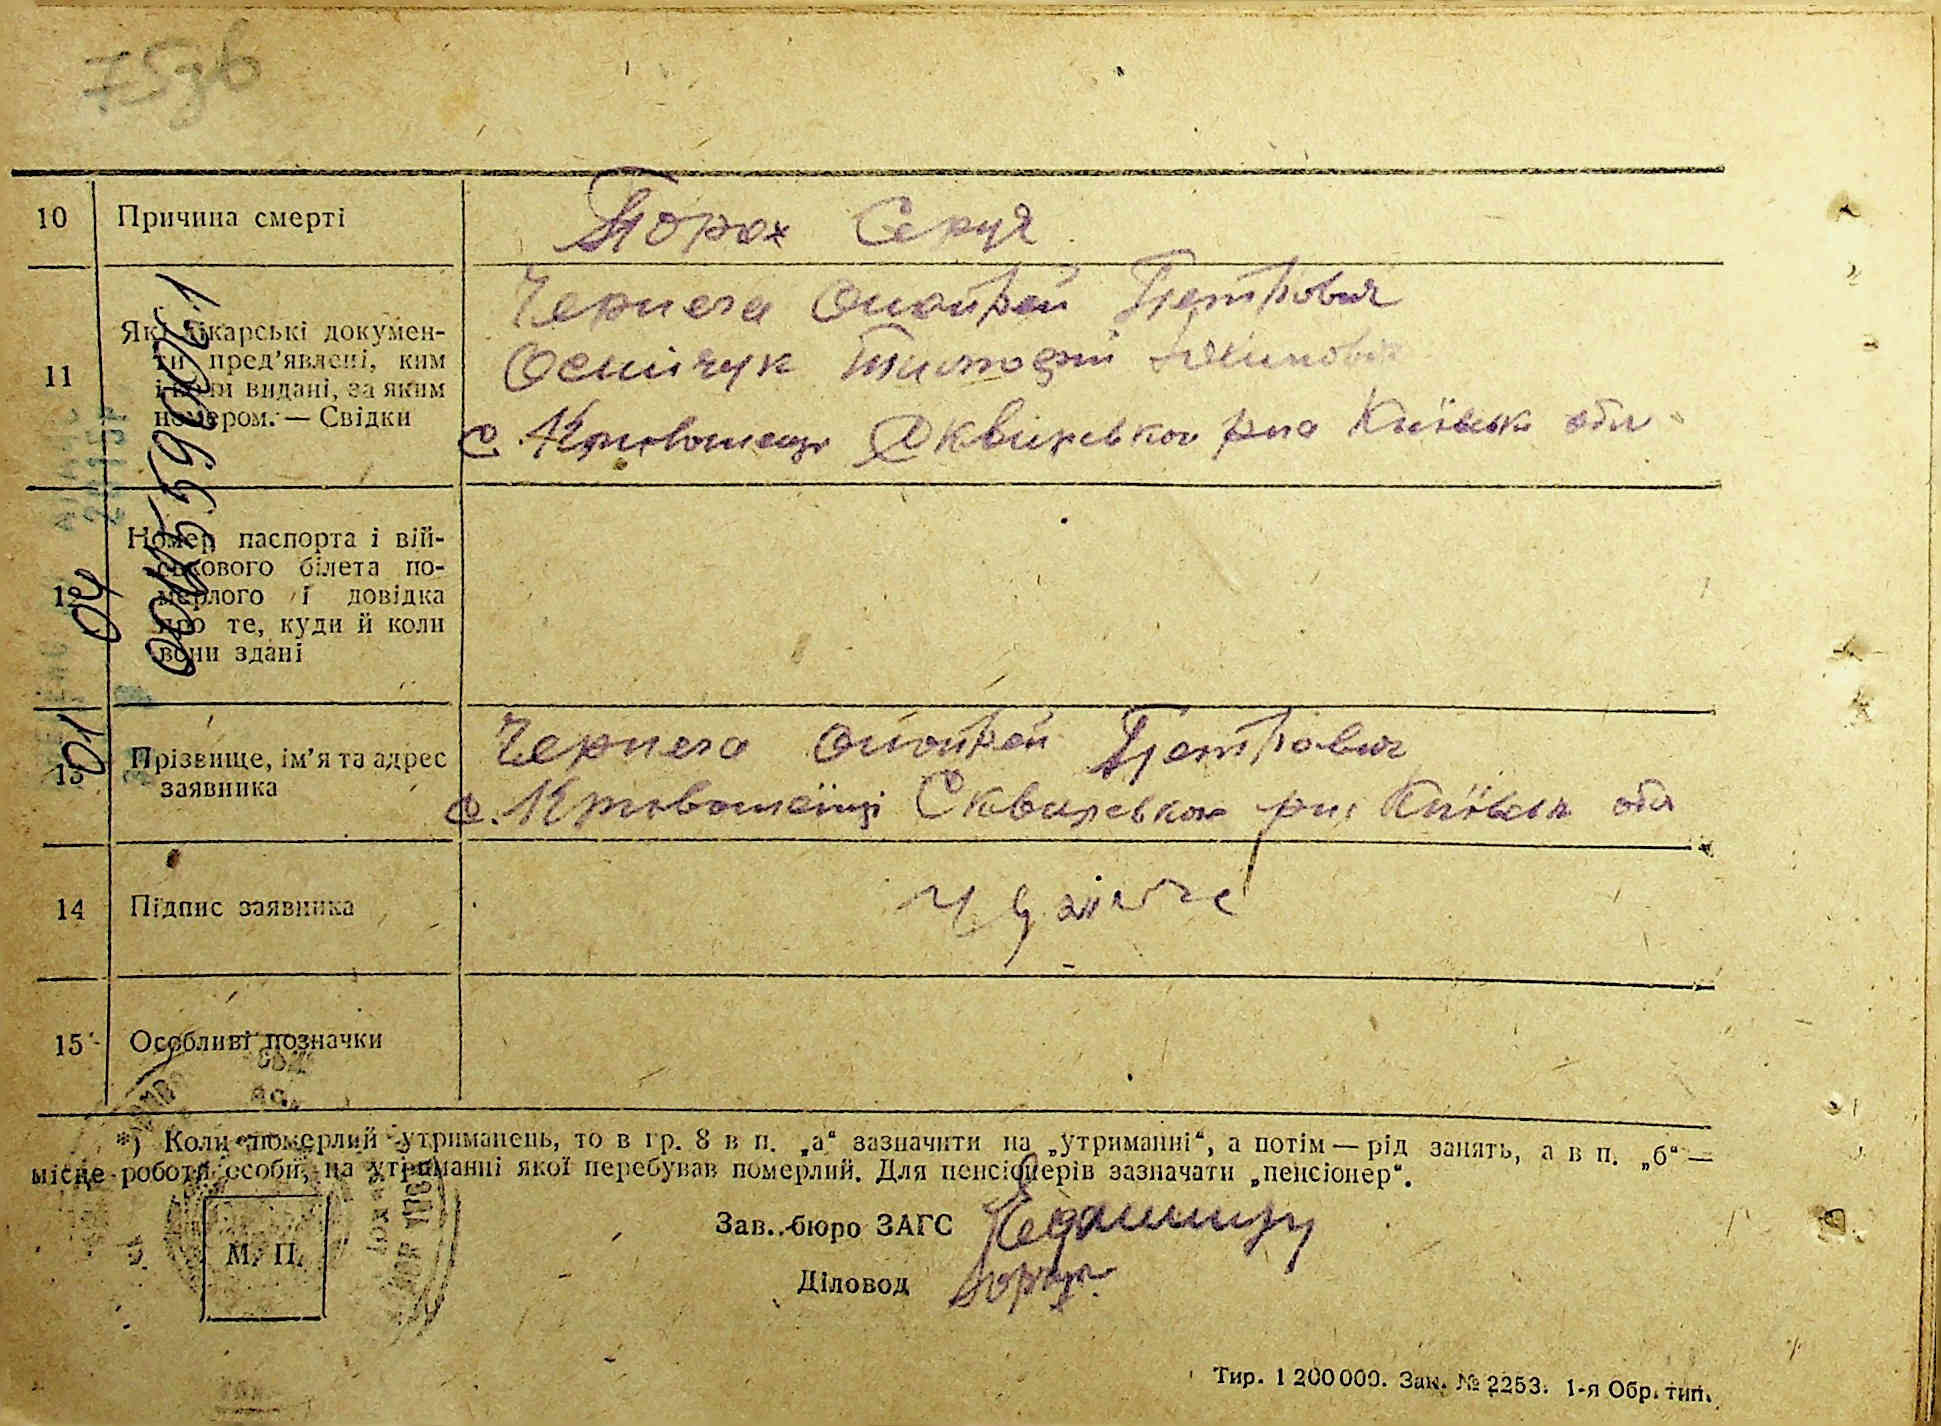 75зв
10 Причина смерті Порок Серця
11 Які лікарські докумен-
ти пред’явлені, ким
і коли видані, за яким
номером. — Свідки
Чернега Онопрей Петрович
Осипчук Тимофій
с. Кривошеинці Сквирськои р-на Київськ обл
12 Номер паспорта і вій-
ськового білета по-
мерлого і довідка
про те, куди й коли
вони здані
13 Прізвище, ім’я та адрес
заявника
Чернега Онопрей Петрович
с. Кривошеїнці Сквирськои р-н Київськ обл
14 Підпис заявника
15 Особливі позначки
*) Коли померлий утриманець, то в гр. 8 в п. „а“ зазначити на „утриманні“, а потім — рід занять, а в п. „б“ —
місце роботи особи, на утриманні якої перебував померлий. Для пенсіонерів зазначати „пенсіонер“.
Зав. бюро ЗАГС
М. П.
Діловод
Тир. 1 200 000. Зак. № 2253. 1-я Обр. тип.